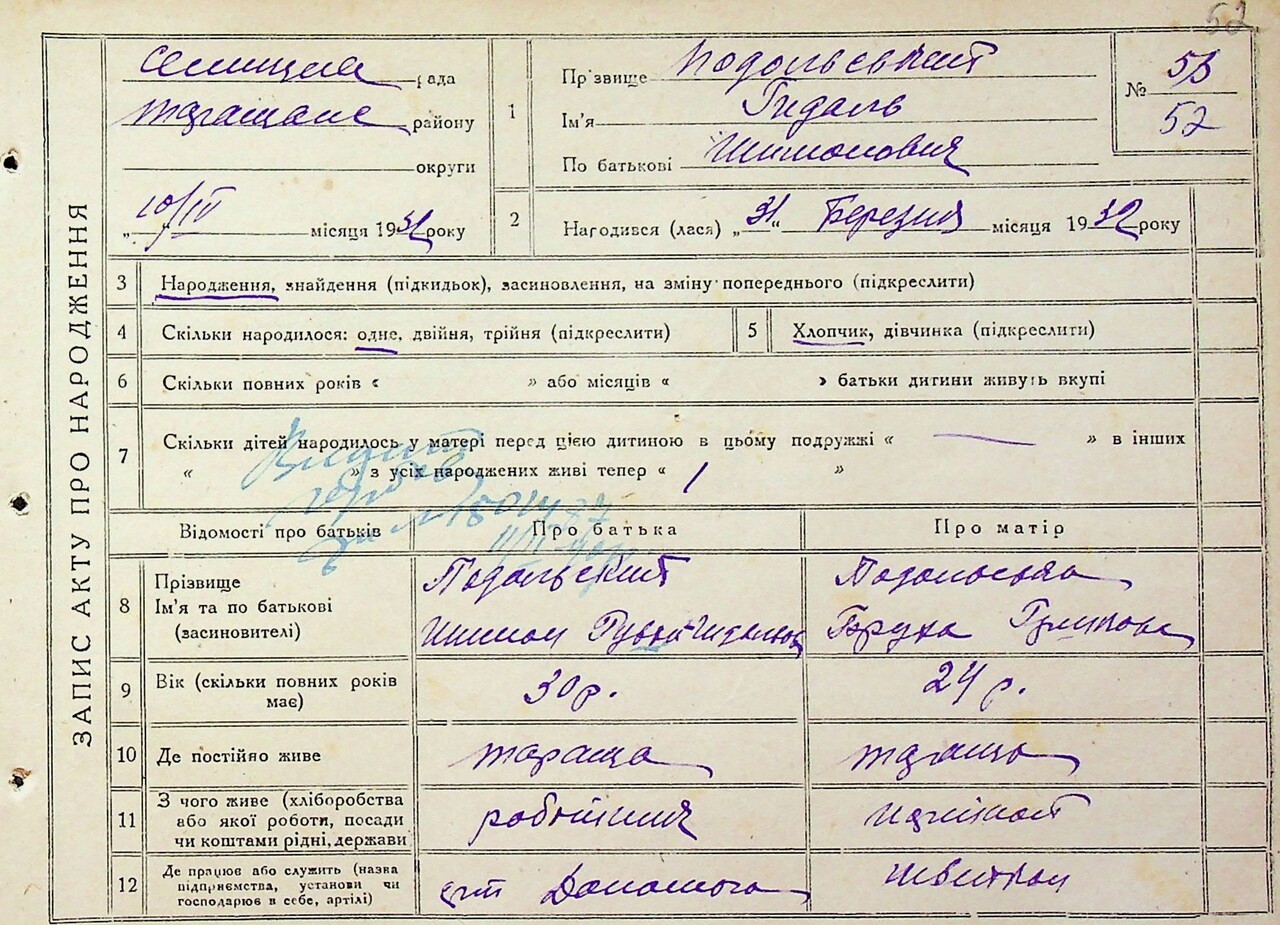 52
ЗАПИС АКТУ ПРО НАРОДЖЕННЯ
Селищна рада
Таращанс району
округи
„10/IV“ місяця 1932 року
1
Прізвище Подольський
Ім'я Гидаль
По батькові Шимонович
№ 53
52
2
Народився (лася) „31“ Березня місяця 1932 року
3 Народження, знайдення (підкидьок), засиновлення, на зміну попереднього (підкреслити)
4 Скільки народилося: одне, двійня, трійня (підкреслити)
5 Хлопчик, дівчинка (підкреслити)
6 Скільки повних років « » або місяців « » батьки дитини живуть вкупі
7 Скільки дітей народилось у матері перед цією дитиною в цьому подружжі « — » в інших
« » з усіх народжених живі тепер « 1 »
Відомості про батьків Про батька Про матір
8 Прізвище
Ім'я та по батькові
(засиновителі)
Подольський
Шимон
Подольська
9 Вік (скільки повних років
має)
30 р. 24 р.
10 Де постійно живе Тараща Тараща
11 З чого живе (хліборобства
або якої роботи, посади
чи коштами рідні, держави
робітник
12 Де працює або служить (назва
підприємства, установи чи
господарює в себе, артілі)
Допомога